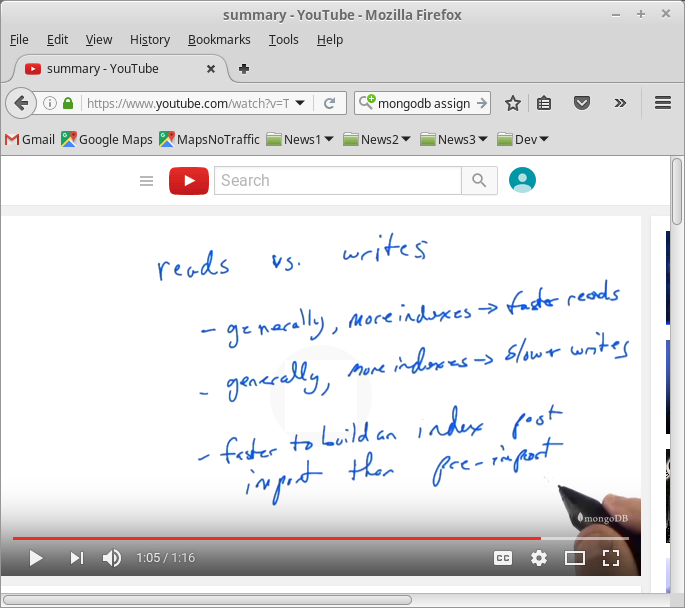 summary - YouTube - Mozilla Firefox
File Edit View History Bookmarks Tools Help
summary - YouTube
https://www.youtube.com/watch?v=T
mongodb assign
Gmail Google Maps MapsNoTraffic News1 News2 News3 Dev
Search
reads vs. writes
- generally, more indexes → faster reads
- generally, more indexes → slower writes
- faster to build an index post
import than pre-import
mongoDB
1:05 / 1:16
CC